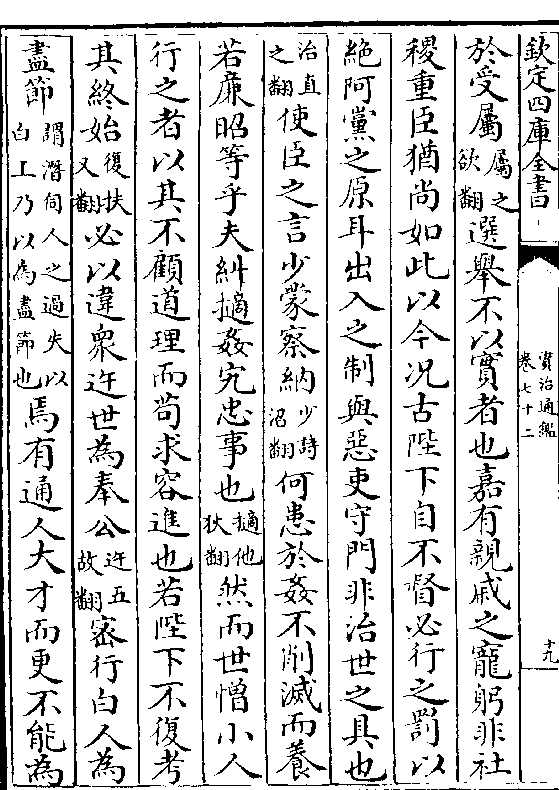 欽定四庫全書
資治通鑑
卷七十二
十九
於受屬屬之欲翻選舉不以實者也嘉有親戚之寵躬非社
稷重臣猶尚如此以今况古陛下自不督必行之罰以
絶阿黨之原耳出入之制與惡吏守門非治世之具也
治直之翻使臣之言少蒙察納少詩沼翻何患於姦不削滅而養
若㢘昭等乎夫糾擿姦宄忠事也擿他狄翻然而世憎小人
行之者以其不顧道理而苟求容進也若陛下不復考
其終始復扶又翻必以違衆迕世為奉公迕五故翻宻行白人為
盡節謂潛伺人之過失以白上乃以為盡節也焉有通人大才而更不能為